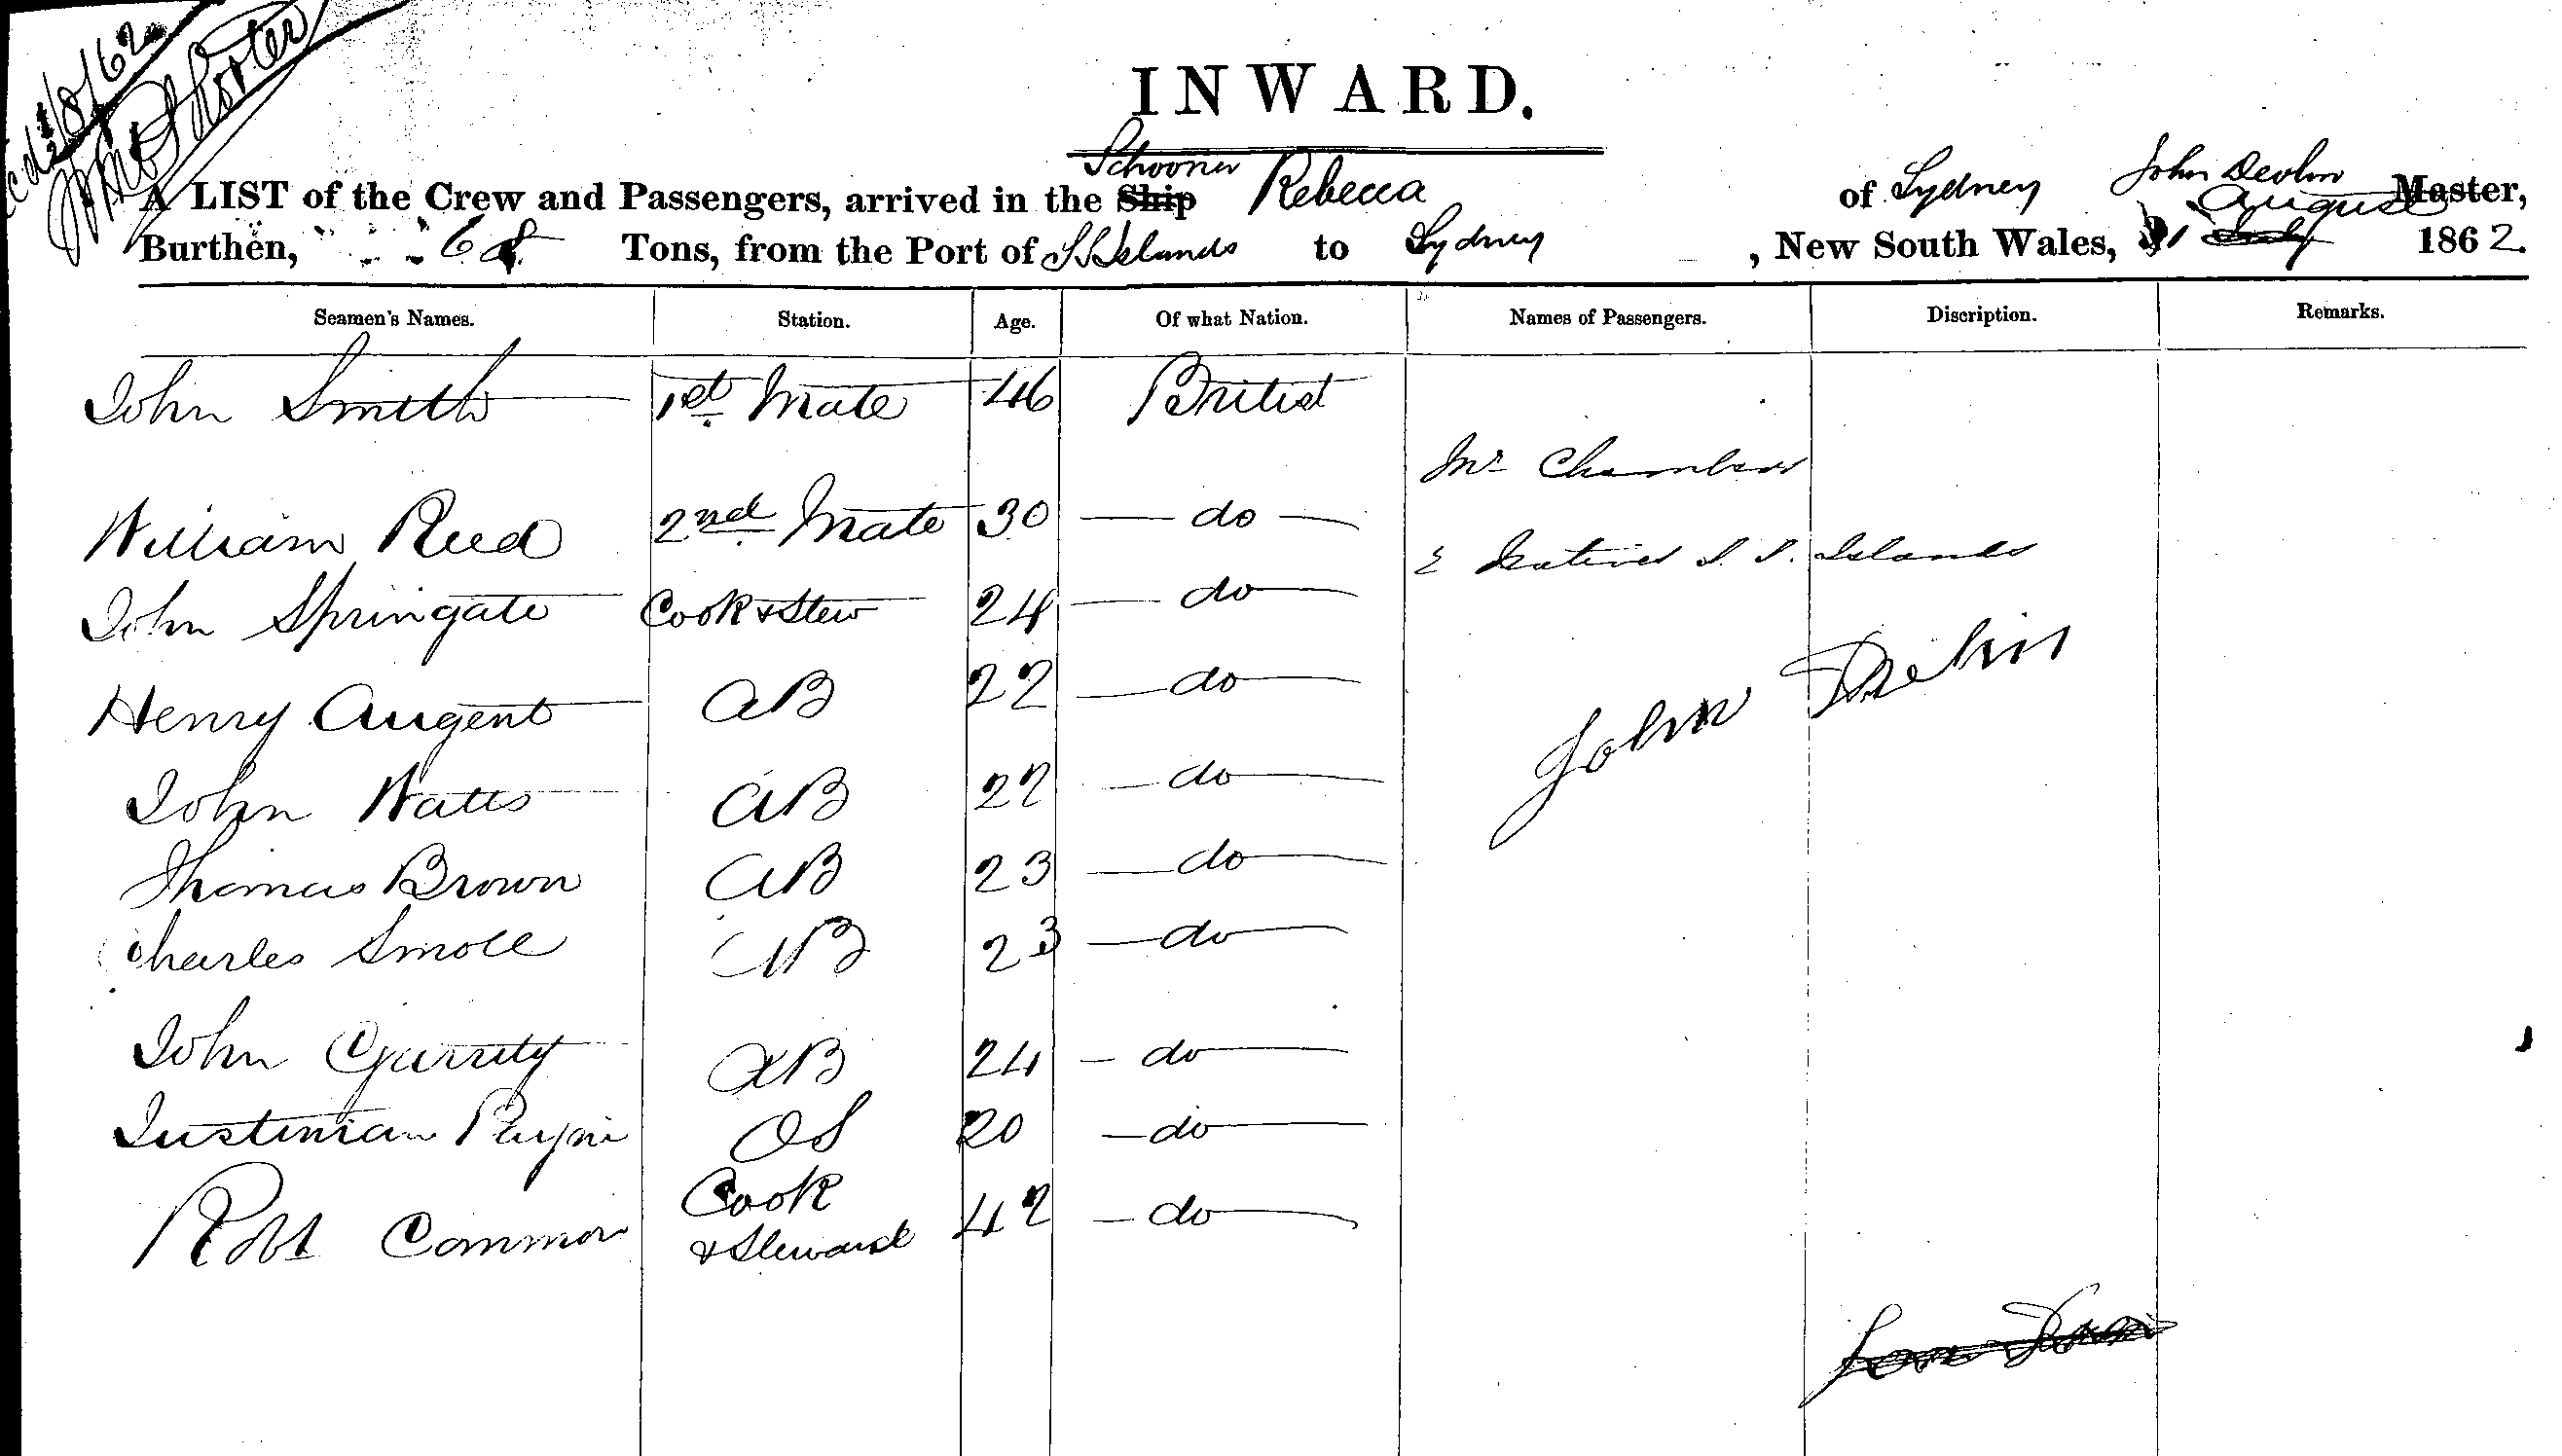 INWARD.
Schooner
A LIST of the Crew and Passengers, arrived in the Ship Rebecca of Sydney John Devlin Master,
August
Burthen, 68 Tons, from the Port of S S Islands to Sydney, New South Wales, 1 July 1862.
Seamen's Names. Station. Age. Of what Nation. Names of Passengers. Discription. Remarks.
John Smith 1st Mate 46 British
Mr Chambers
William Reed 2nd Mate 30 do
Natives S. S. Islands
John Springate Cook & Stew 24 do
John Devlin
Henry Augent AB 22 do
John Watts AB 22 do
Thomas Brown AB 23 do
Charles Smole AB 23 do
John Garrity AB 24 do
Justinian Payne OS 20 do
Robt Common Cook & Steward 42 do